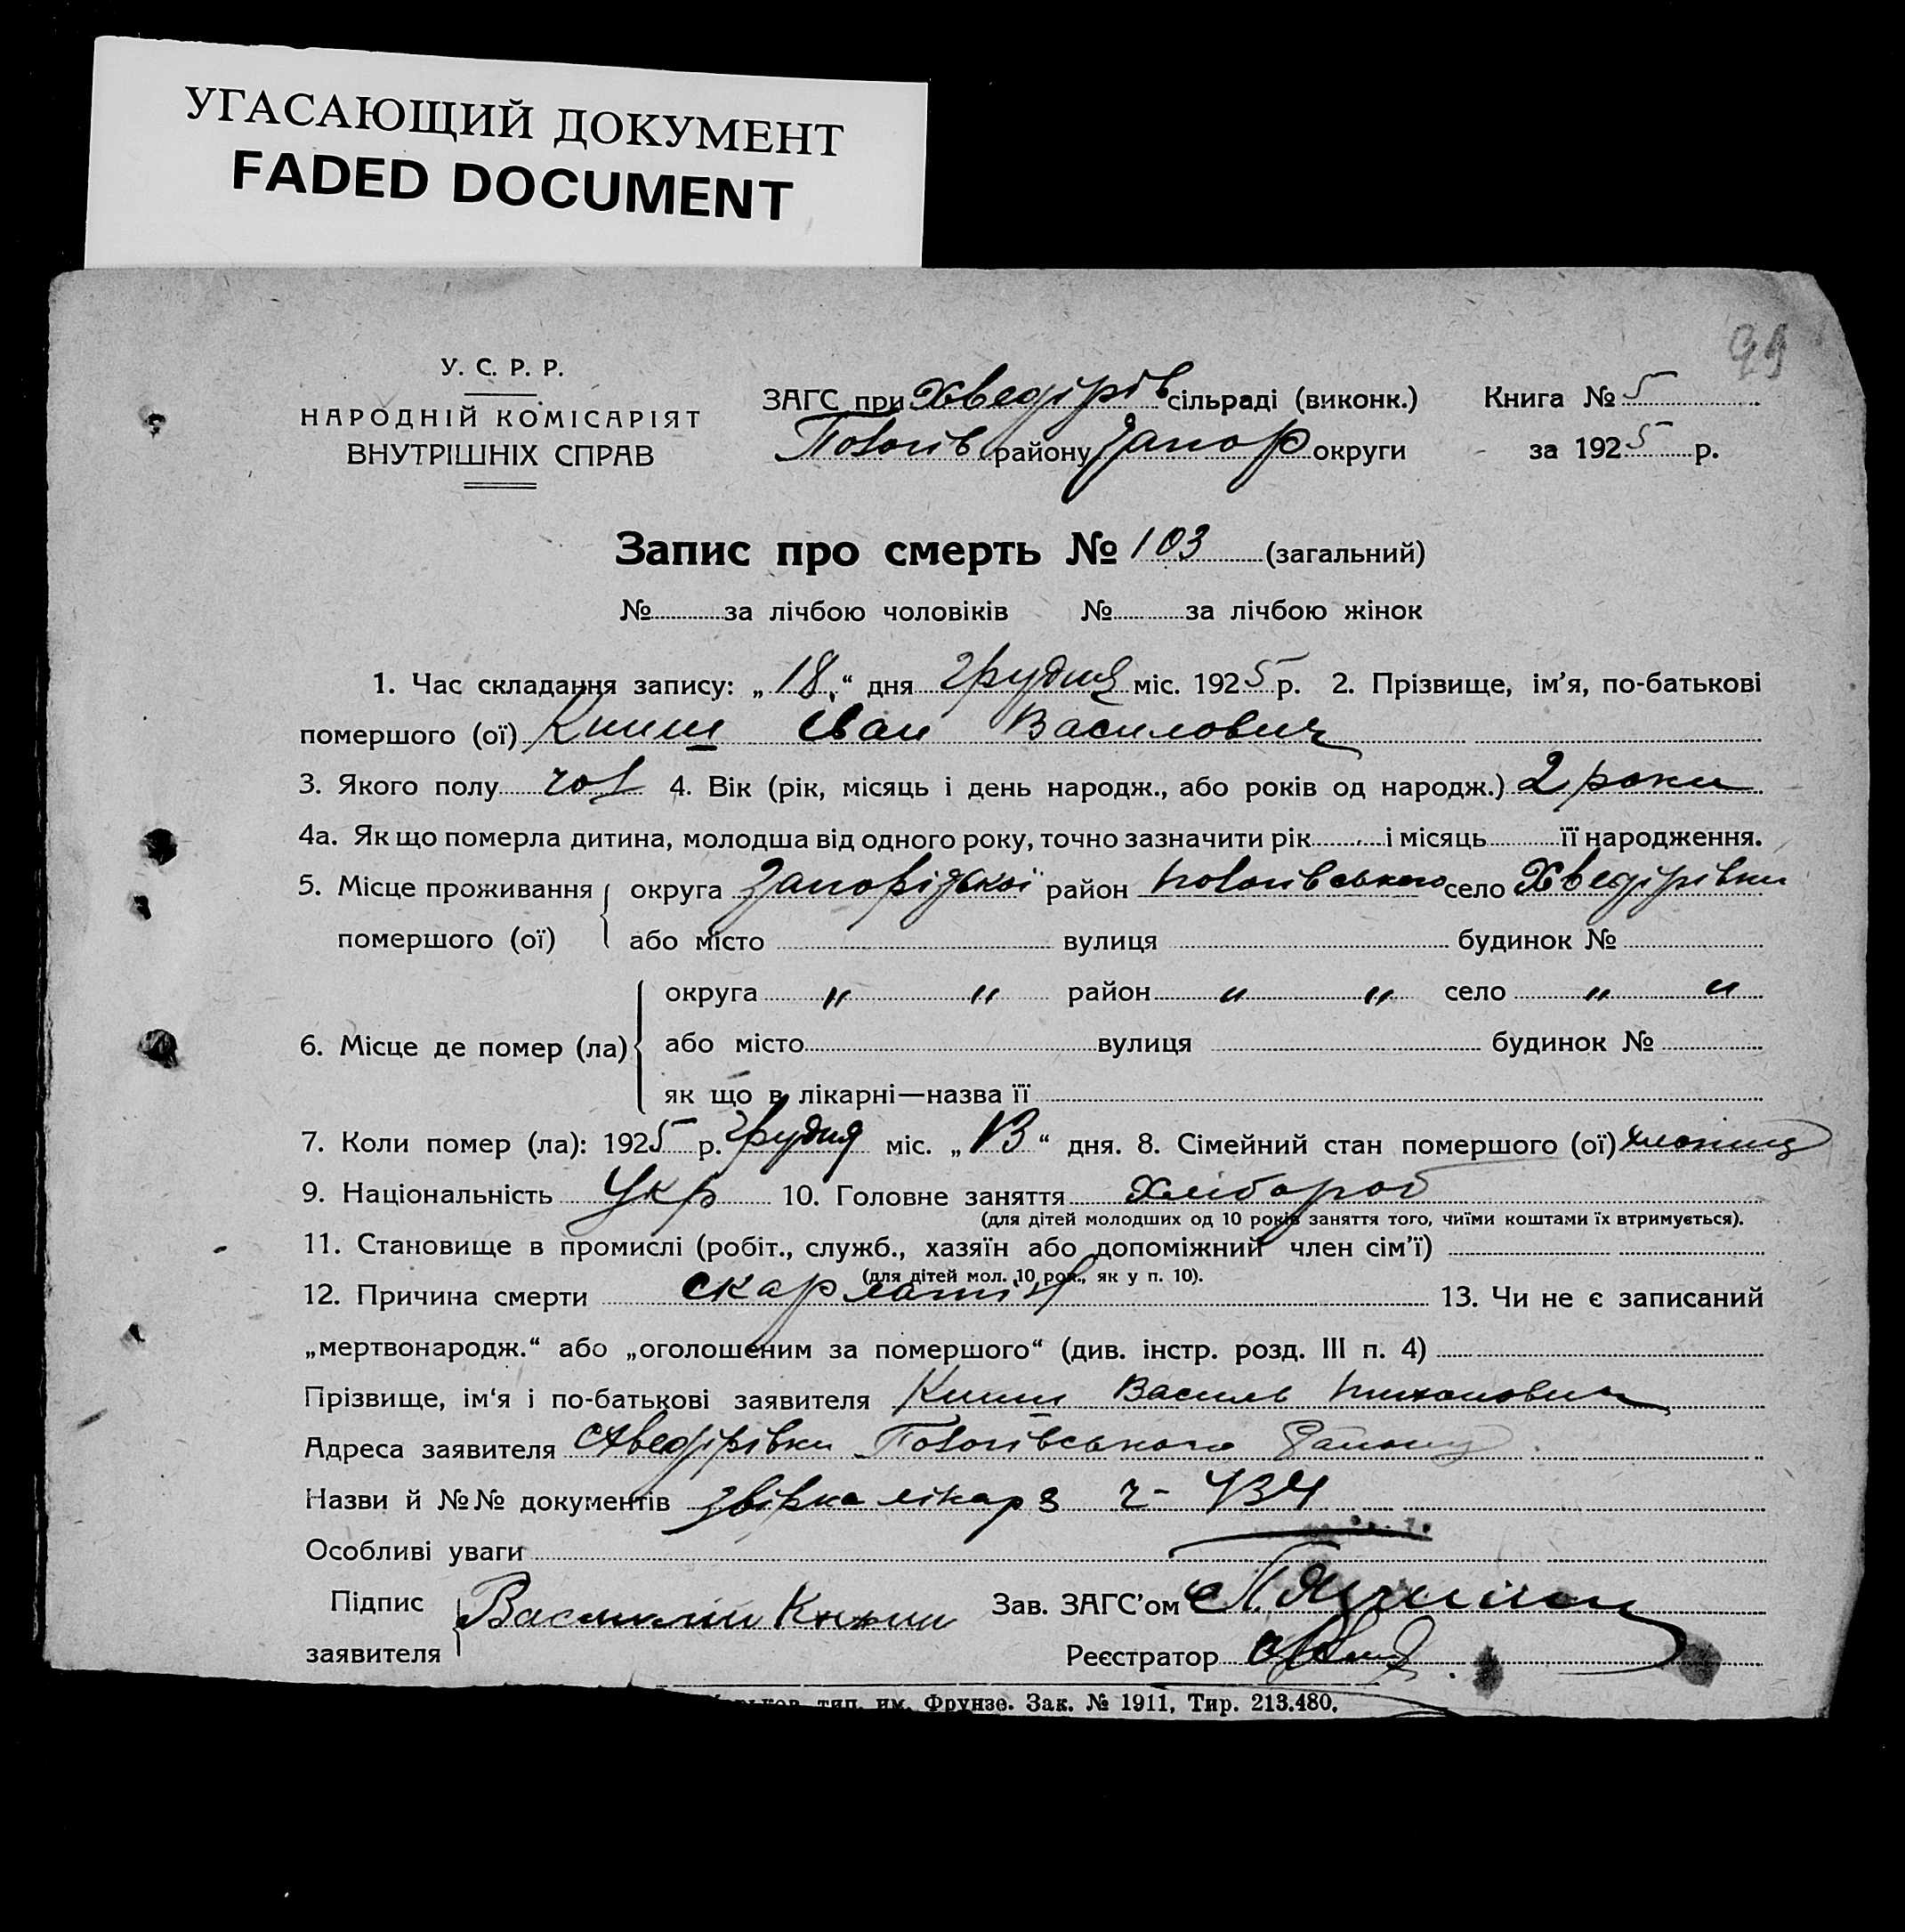 УГАСАЮЩИЙ ДОКУМЕНТ
FADED DOCUMENT
99
У. С. Р. Р.
НАРОДНІЙ КОМІСАРІЯТ
ВНУТРІШНІХ СПРАВ
ЗАГС при Хведірів сільраді (виконк.)
Пологів району Запор округи
Книга № 5
за 1925 р.
Запис про смерть № 103 (загальний)
№ за лічбою чоловіків № за лічбою жінок
1. Час складання запису: „18“ дня грудня міс. 1925 р. 2. Прізвище, ім’я, по-батькові
помершого (ої) Книш Іван Василович
3. Якого полу чол 4. Вік (рік, місяць і день народж., або років од народж.) 2 роки
4а. Як що померла дитина, молодша від одного року, точно зазначити рік і місяць її народження.
5. Місце проживання округа Запорізької район Пологівського село Хведірівки
помершого (ої) або місто вулиця будинок №
округа „ „ район „ „ село „ „
6. Місце де помер (ла) або місто вулиця будинок №
як що в лікарні—назва її
7. Коли помер (ла): 1925 р. грудня міс. „13“ дня. 8. Сімейний стан помершого (ої) хлопиц
9. Національність Укр 10. Головне заняття Хлібороб
(для дітей молодших од 10 років заняття того, чиїми коштами їх втримується).
11. Становище в промислі (робіт., служб., хазяїн або допоміжний член сім’ї)
(для дітей мол. 10 рок., як у п. 10).
12. Причина смерти скарлатіз 13. Чи не є записаний
„мертвонародж.“ або „оголошеним за помершого“ (див. інстр. розд. III п. 4)
Прізвище, ім‘я і по-батькові заявителя Книш Василь Тихонович
Адреса заявителя Хведірівки Пологівського району
Назви й №№ документів звірка лікаря ч- 434
Особливі уваги
Підпис
заявителя Василий Книш
Зав. ЗАГС’ом
Реєстратор
тип. им. Фрунзе. Зак. № 1911, Тир. 213.480.